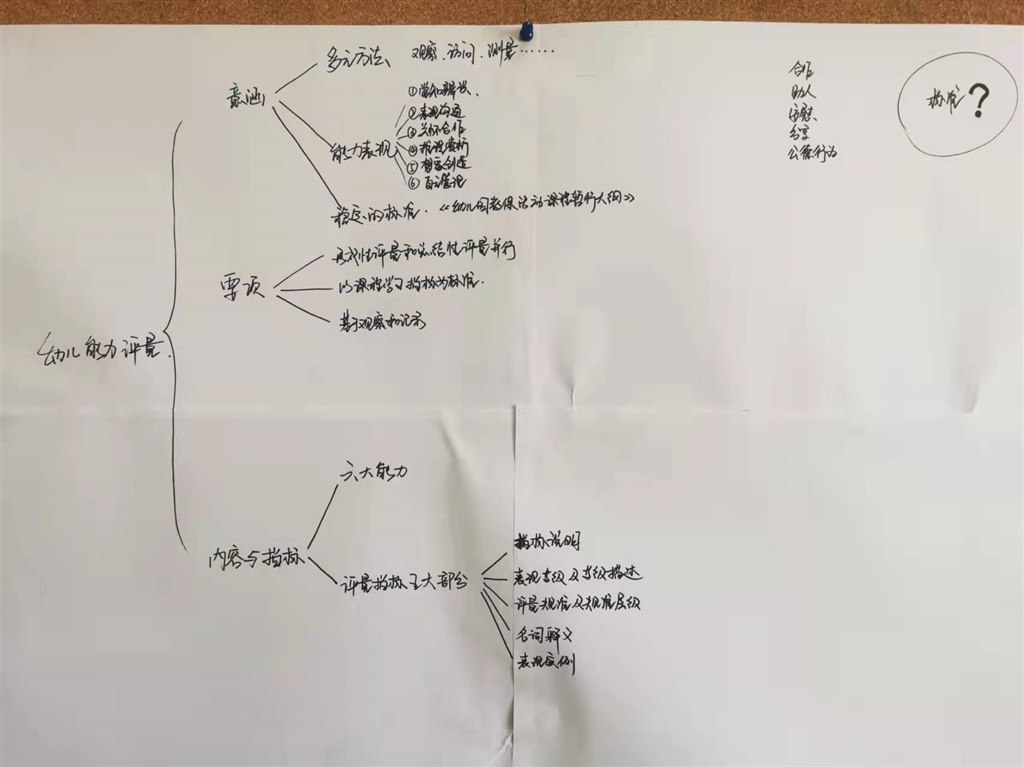 幼儿能力评量.
意涵
多元方法 观察、访问、测量……
能力表现
①觉知辨识、
②表现沟通
③关怀合作
④推理赏析
⑤想象创造
⑥自主管理
稳定的标准.《幼儿园教保活动课程暂行大纲》
要项
形成性评量和总结性评量并行
以课程学习指标为标准.
基于观察和记录
内容与指标
六大能力
评量指标五大部分
指标说明
表现等级及等级描述
评量规准及规准层级
名词释义
表现实例
合作
助人
安慰
分享
公德行为
标准?